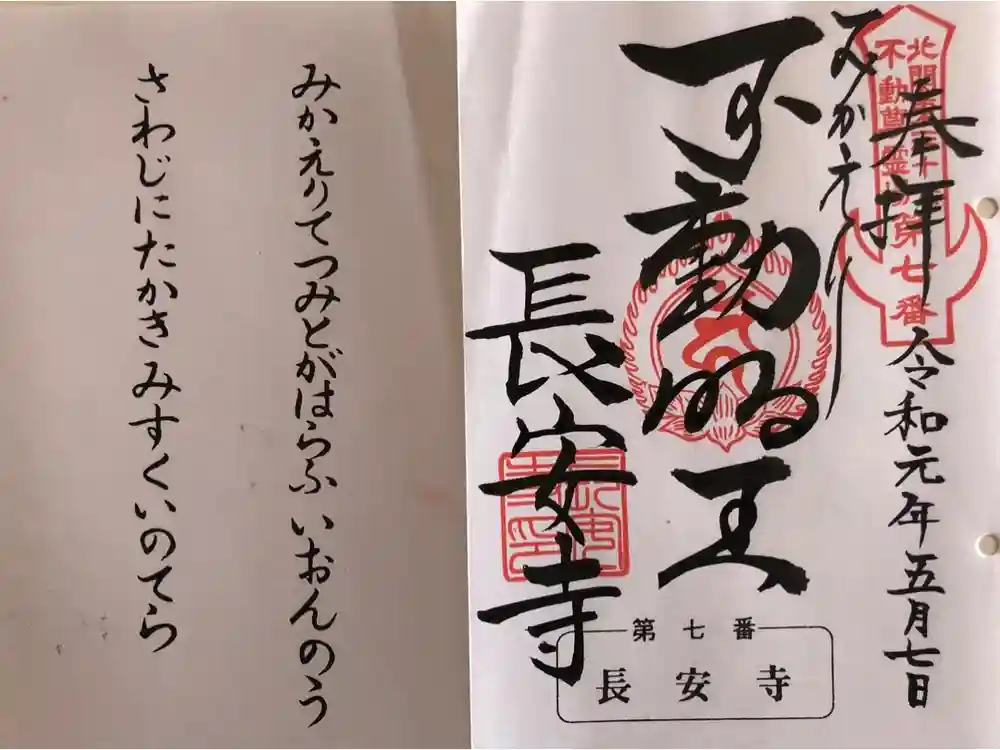 みかえりてつみとがはらふいおんのう
さわじにたかきみすくいのてら
奉拝
令和元年五月七日
みかえり
不動明王
長安寺
不動尊霊場第七番
第七番
長安寺